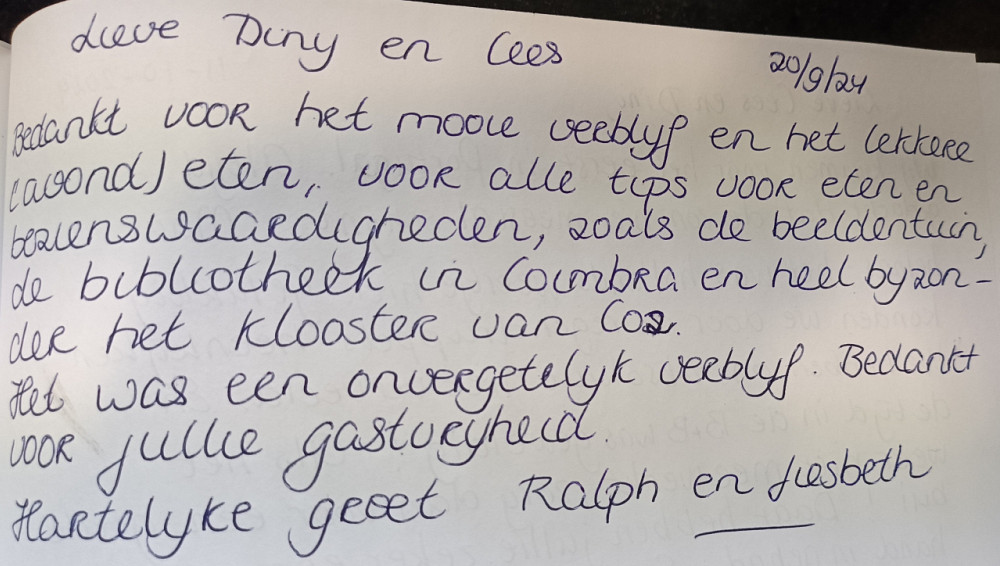 Lieve Diny en Cees
20/9/24
Bedankt voor het mooie verblyf en het lekkere
(avond) eten, voor alle tips voor eten en
bezienswaardigheden, zoals de beeldentuin,
de bibliotheek in Coimbra en heel byzon-
der het klooster van Cos.
Het was een onvergetelyk verblyf. Bedankt
voor jullie gastvryheid.
Hartelyke groet Ralph en Liesbeth